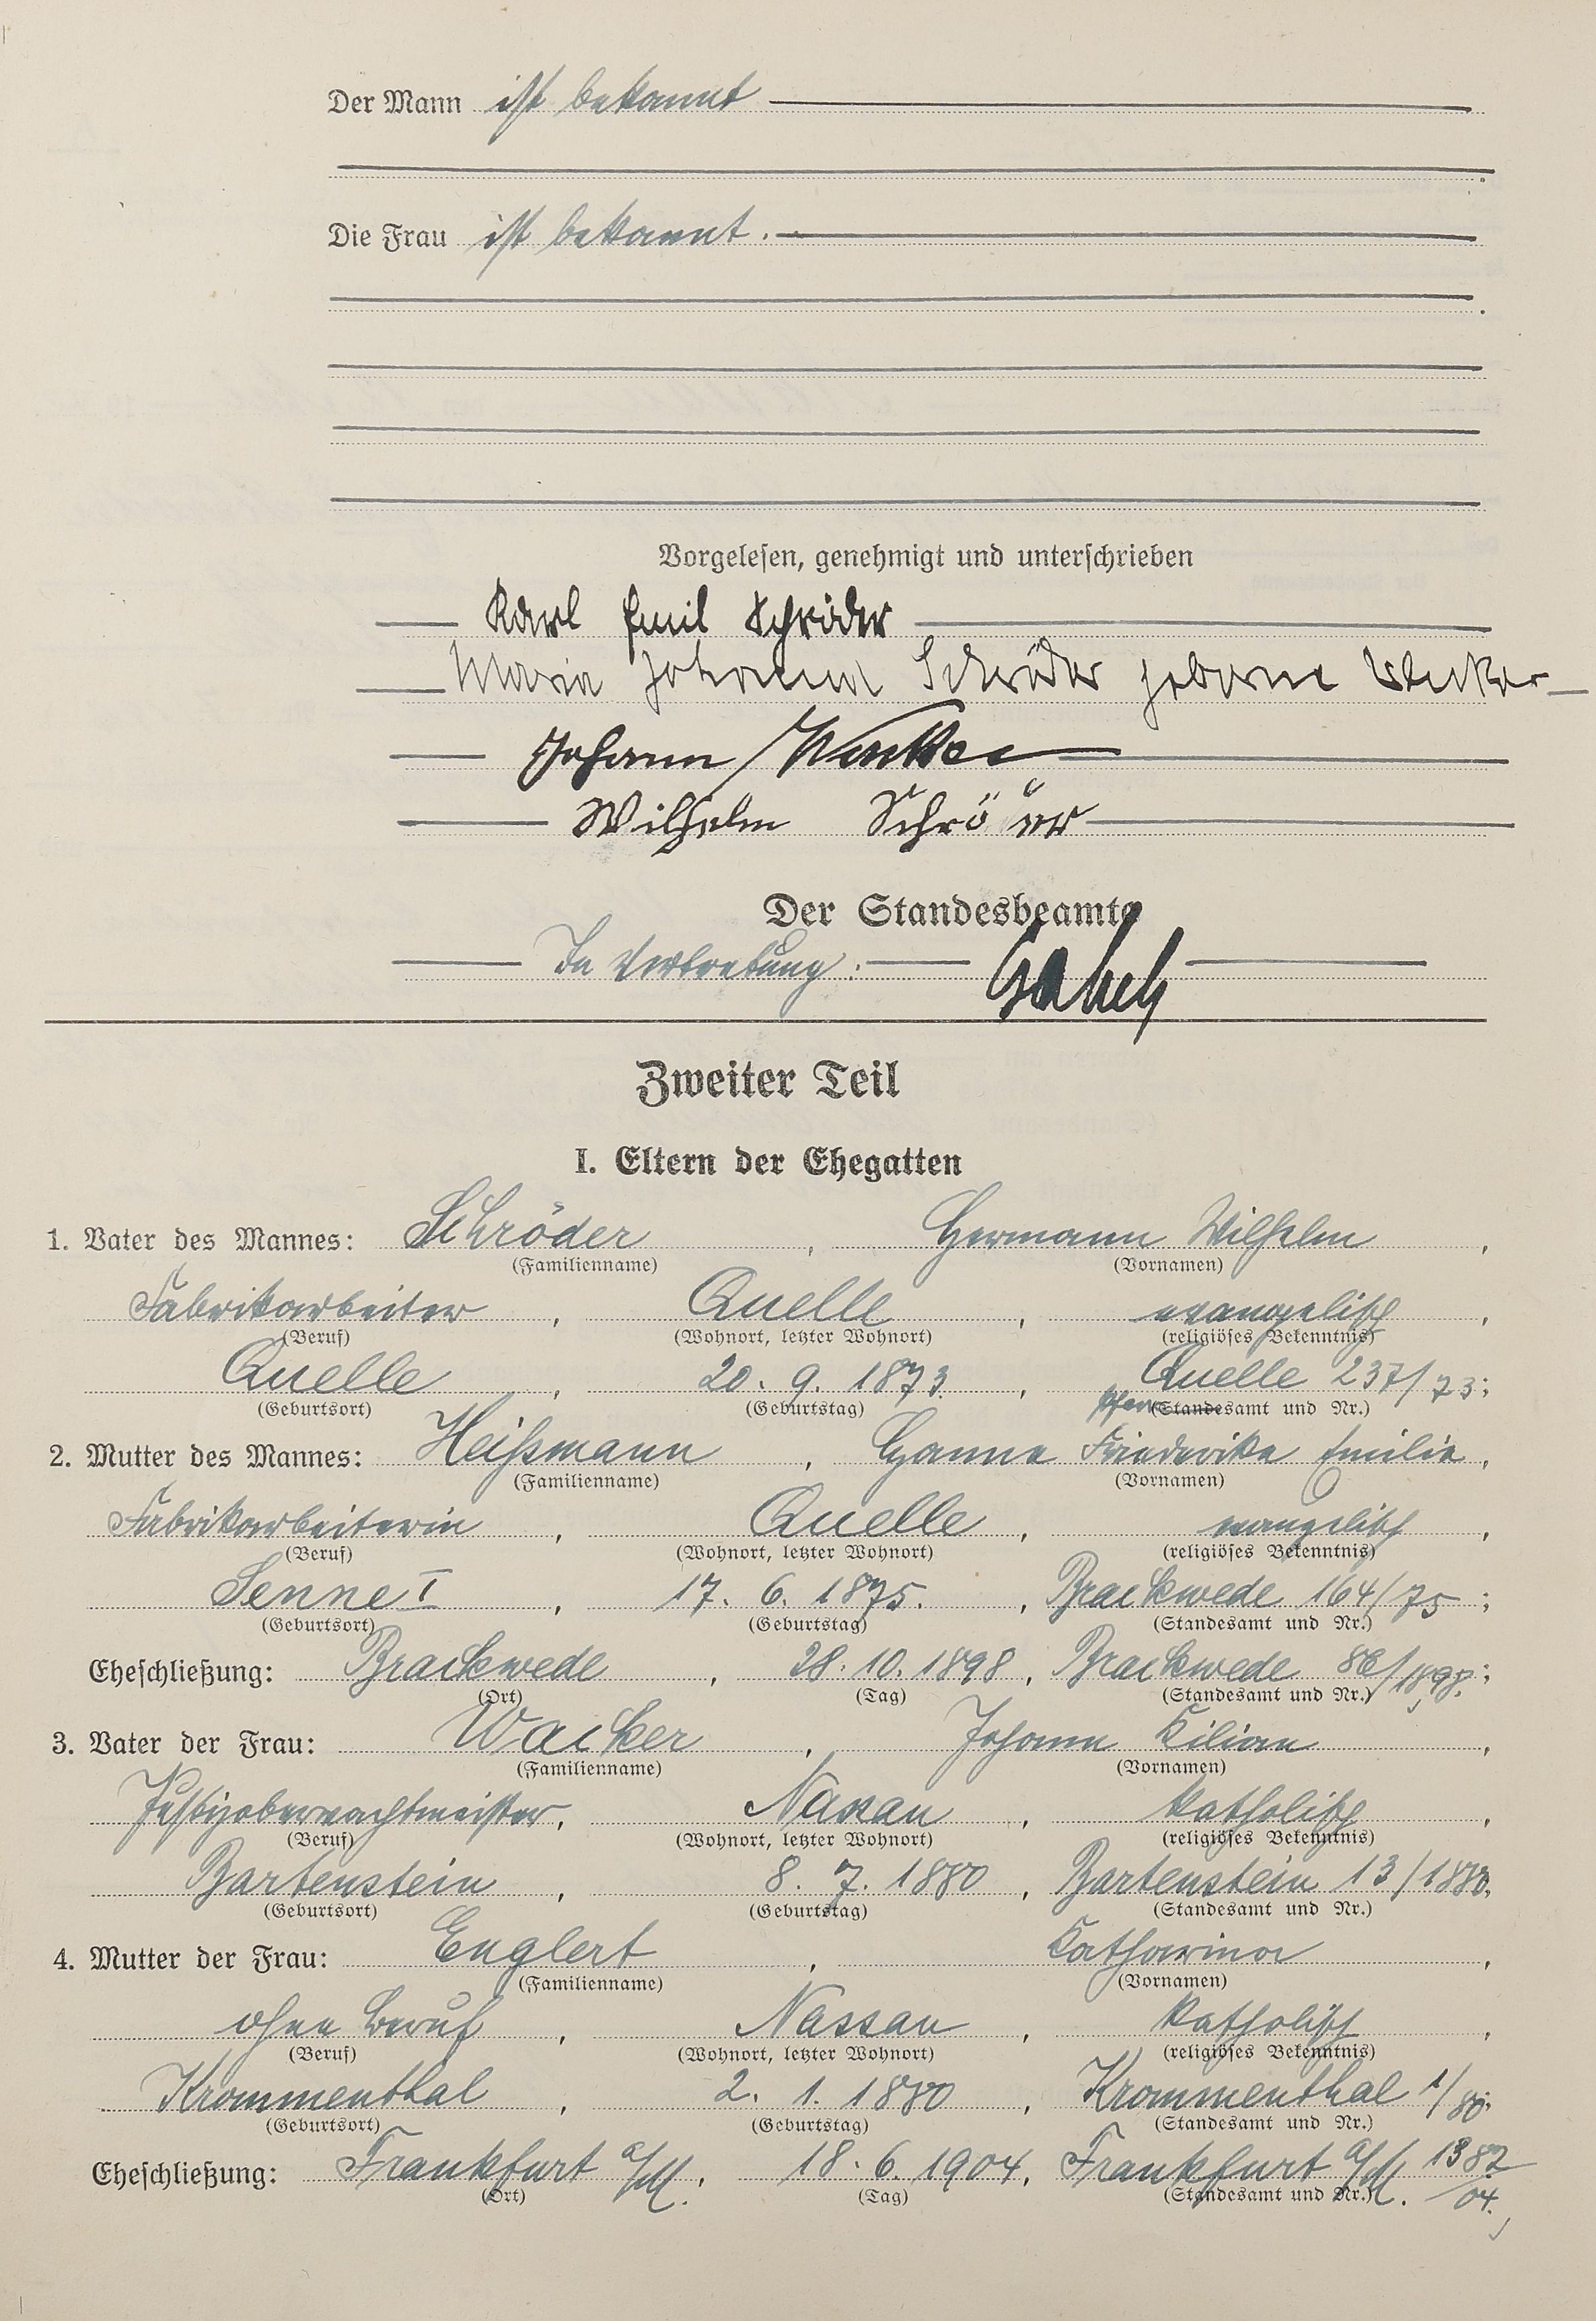 Der Mann ist bekannt
Die Frau ist bekannt.
Vorgelesen, genehmigt und unterschrieben
Karl Emil Schröder
Maria Johanna Schröder geborene Wacker
Johann Wacker
Wilhelm Schröder
Der Standesbeamte
In Vertretung:
Zweiter Teil
I. Eltern der Ehegatten
1. Vater des Mannes: Schröder, Hermann Wilhelm,
(Familienname) (Vornamen)
Fabrikarbeiter, Quelle, evangelisch,
(Beruf) (Wohnort, letzter Wohnort) (religiöses Bekenntnis)
Quelle, 20. 9. 1873, Quelle 237/73;
(Geburtsort) (Geburtstag) (Standesamt und Nr.)
2. Mutter des Mannes: Heißmann, Hanne Friederike Emilie,
(Familienname) (Vornamen)
Fabrikarbeiterin, Quelle, evangelisch,
(Beruf) (Wohnort, letzter Wohnort) (religiöses Bekenntnis)
Senne I, 17. 6. 1875., Brackwede 164/75;
(Geburtsort) (Geburtstag) (Standesamt und Nr.)
Eheschließung: Brackwede, 28. 10. 1898, Brackwede 86/1898;
(Ort) (Tag) (Standesamt und Nr.)
3. Vater der Frau: Wacker, Johann Kilian,
(Familienname) (Vornamen)
Justizoberwachtmeister, Nassau, katholisch,
(Beruf) (Wohnort, letzter Wohnort) (religiöses Bekenntnis)
Bartenstein, 8. 7. 1880, Bartenstein 13/1880.
(Geburtsort) (Geburtstag) (Standesamt und Nr.)
4. Mutter der Frau: Englert, Katharina,
(Familienname) (Vornamen)
ohne Beruf, Nassau, katholisch,
(Beruf) (Wohnort, letzter Wohnort) (religiöses Bekenntnis)
Krommenthal, 2. 1. 1880, Krommenthal 1/80;
(Geburtsort) (Geburtstag) (Standesamt und Nr.)
Eheschließung: Frankfurt a/M., 18. 6. 1904, Frankfurt a/M. 1382/04.
(Ort) (Tag) (Standesamt und Nr.)